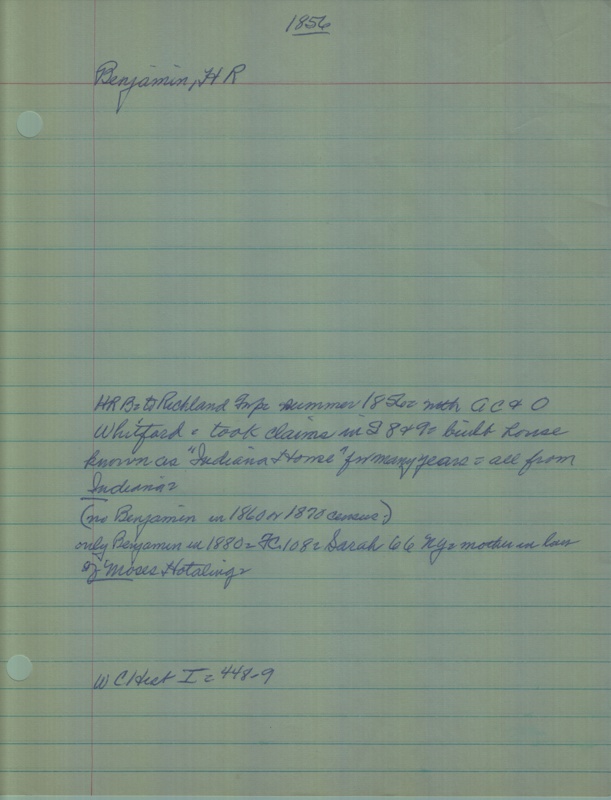 1856
Benjamin, H R
HRB = to Richland Twp = summer 1856 = with A C & O
Whitford = took claims in S 8 & 9 = built house
known as "Indiana House" for many years = all from
Indiana =
(no Benjamin in 1860 or 1870 census)
only Benjamin in 1880 = 108 = Sarah 66 NY = mother in law
of Moses Hotaling =
W C Hist I = 448-9